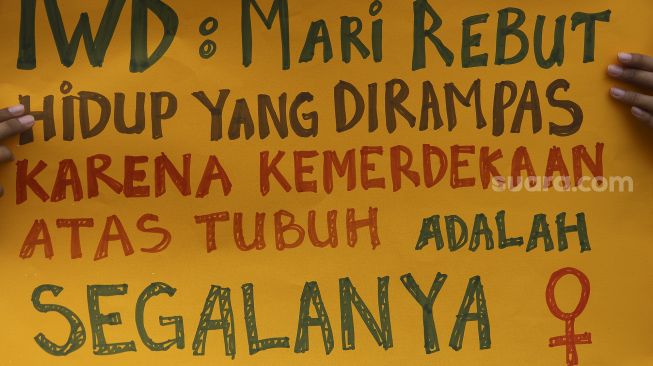 IWD: MARI REBUT
HIDUP YANG DIRAMPAS
KARENA KEMERDEKAAN
ATAS TUBUH ADALAH
SEGALANYA
suara.com